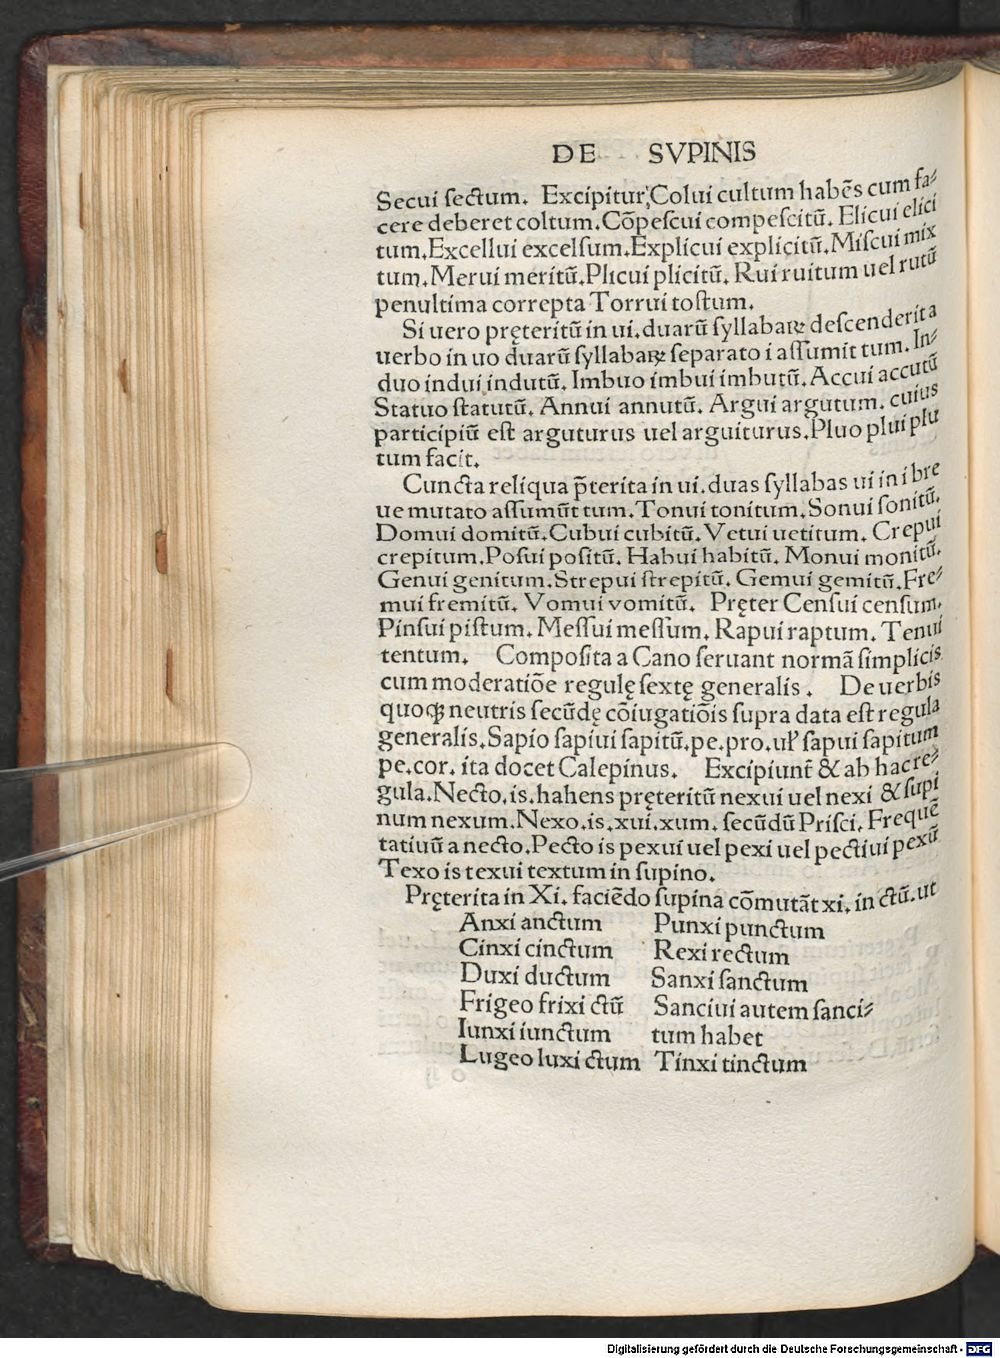 DE SVPINIS
Secui ſectum. Excipitur, Colui cultum habēs cum fa⸗
cere deberet coltum. Cōpeſcui compeſcitū. Elicui elici
tum. Excellui excelſum. Explicui explicitū. Miſcui mix
tum. Merui meritū. Plicui plicitū. Rui ruitum uel rutū
penultima correpta Torrui toſtum.
Si uero pręteritū in ui. duarū ſyllabaꝝ deſcenderit a
uerbo in uo duarū ſyllabaꝝ ſeparato i aſſumit tum. In⸗
duo indui indutū. Imbuo imbui imbutū. Accui accutū
Statuo ſtatutū. Annui annutū. Argui argutum. cuius
participiū eſt arguturus uel arguiturus. Pluo plui plu
tum facit.
Cuncta reliqua p̄terita in ui. duas ſyllabas ui in i bre
ue mutato aſſumūt tum. Tonui tonitum. Sonui ſonitū.
Domui domitū. Cubui cubitū. Vetui uetitum. Crepui
crepitum. Poſui poſitū. Habui habitū. Monui monitū.
Genui genitum. Strepui ſtrepitū. Gemui gemitū. Fre⸗
mui fremitū. Vomui vomitū. Pręter Cenſui cenſum.
Pinſui piſtum. Meſſui meſſum. Rapui raptum. Tenui
tentum. Compoſita a Cano ſeruant normā ſimplicis
cum moderatiōe regulę ſextę generalis. De uerbis
quoqꝫ neutris ſecūdę cōiugatiōis ſupra data eſt regula
generalis. Sapio ſapiui ſapitū. pe. pro. uł ſapui ſapitum
pe. cor. ita docet Calepinus. Excipiunt̄ & ab hac re⸗
gula. Necto, is. hahens pręteritū nexui uel nexi & ſupi
num nexum. Nexo. is. xui. xum. ſecūdū Priſci. Frequē
tatiuū a necto. Pecto is pexui uel pexi uel pectiui pexū
Texo is texui textum in ſupino.
Pręterita in Xi. faciēdo ſupina cōmutāt xi. in ctū. ut
Anxi anctum Punxi punctum
Cinxi cinctum Rexi rectum
Duxi ductum Sanxi ſanctum
Frigeo frixi ctū Sanciui autem ſanci⸗
Iunxi iunctum tum habet
Lugeo luxi ctum Tinxi tinctum
Digitalisierung gefördert durch die Deutsche Forschungsgemeinschaft - DFG